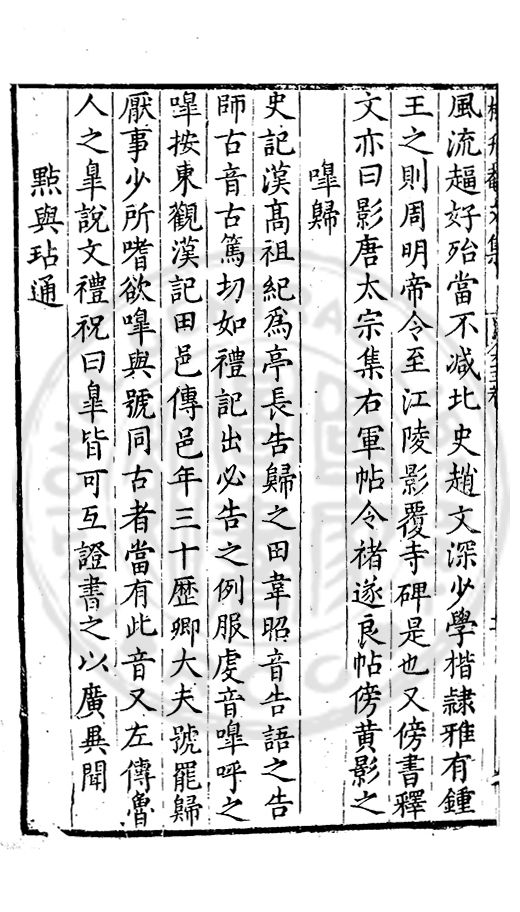 風流好殆當不减北史趙文深少學楷隷雅有鍾
王之則周明帝令至江陵影覆寺碑是也又傍書釋
文亦曰影唐太宗集右軍帖令禇遂良帖傍黄影之
嘷歸
史記漢髙祖紀為亭長告歸之田韋昭音告語之告
師古音古篤切如禮記出必告之例服虔音嘷呼之
嘷按東觀漢記田邑傳邑年三十歷卿大夫號罷歸
厭事少所嗜欲嘷與號同古者當有此音又左傳魯
人之臯說文禮祝曰臯皆可互證書之以廣異聞
點與玷通